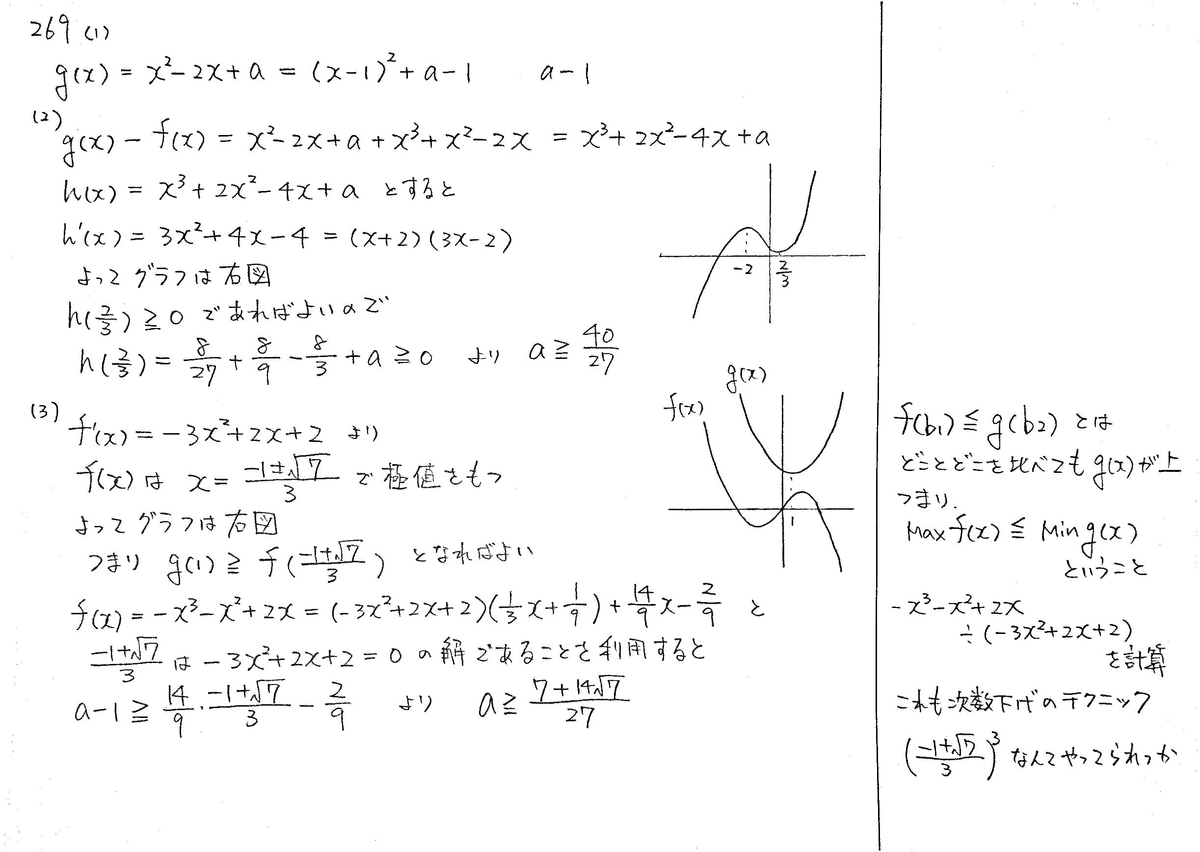 269 (1)
g(x) = x²-2x+a = (x-1)²+a-1   a-1
(2)
g(x) - f(x) = x²-2x+a+x³+x²-2x = x³+2x²-4x+a
h(x) = x³+2x²-4x+a とすると
h'(x) = 3x²+4x-4 = (x+2)(3x-2)
よってグラフは右図
-2 2/3
h(2/3) ≧ 0 であればよいので
h(2/3) = 8/27 + 8/9 - 8/3 + a ≧ 0 より a ≧ 40/27
g(x)
f(x)
1
(3)
f'(x) = -3x²+2x+2 より
f(x) は x = (-1±√7)/3 で極値をもつ
よってグラフは右図
つまり g(1) ≧ f((-1+√7)/3) となればよい
f(x) = -x³-x²+2x = (-3x²+2x+2)(1/3x+1/9)+14/9x-2/9 と
(-1+√7)/3 は -3x²+2x+2=0 の解であることを利用すると
a-1 ≧ 14/9・(-1+√7)/3 - 2/9 より a ≧ (7+14√7)/27
f(b₁) ≦ g(b₂) とは
どことどこを比べても g(x) が上
つまり.
Max f(x) ≦ Min g(x)
ということ
-x³-x²+2x
÷(-3x²+2x+2)
を計算
これも次数下げのテクニック
((-1+√7)/3)³ なんてやってられっか